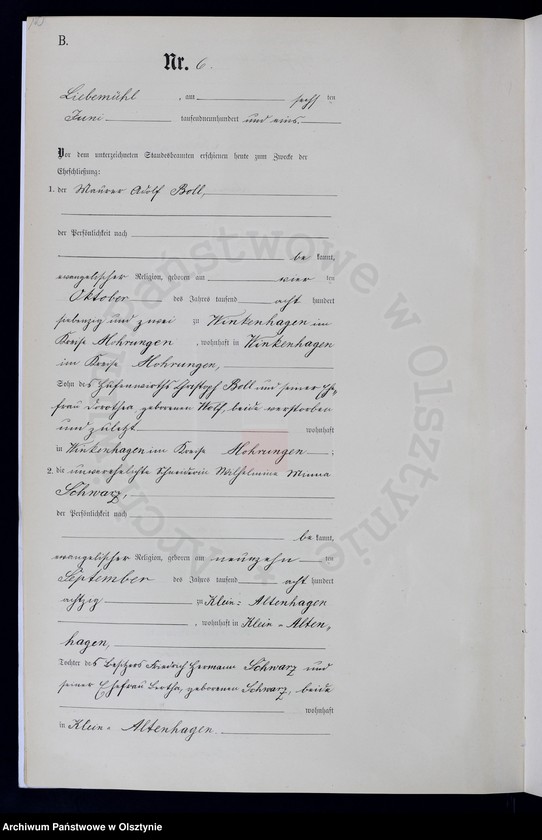 B.
Nr. 6.
Liebemühl, am sechsten
Juni tausendneunhundert und eins.
Vor dem unterzeichneten Standesbeamten erschienen heute zum Zwecke der
Eheschließung:
1. der Maurer Adolf Boll,
der Persönlichkeit nach
bekannt,
evangelischer Religion, geboren am vierten
Oktober des Jahres tausend acht hundert
siebenzig und zwei zu Winkenhagen im
Kreise Mohrungen, wohnhaft in Winkenhagen
im Kreise Mohrungen,
Sohn des Hufenwirths Christoph Boll und seiner Ehe=
frau Dorothea geborenen Wolf, beide verstorben
und zuletzt wohnhaft
in Winkenhagen im Kreise Mohrungen;
2. die unverehelichte Schneiderin Wilhelmine Minna
Schwarz,
der Persönlichkeit nach
bekannt,
evangelischer Religion, geboren am neunzehnten
September des Jahres tausend acht hundert
achtzig zu Klein=Altenhagen
, wohnhaft in Klein=Alten=
hagen,
Tochter des Besitzers Friedrich Hermann Schwarz und
seiner Ehefrau Bertha, geborenen Schwarz, beide
wohnhaft
in Klein=Altenhagen.
Archiwum Państwowe w Olsztynie
Archiwum Państwowe w Olsztynie